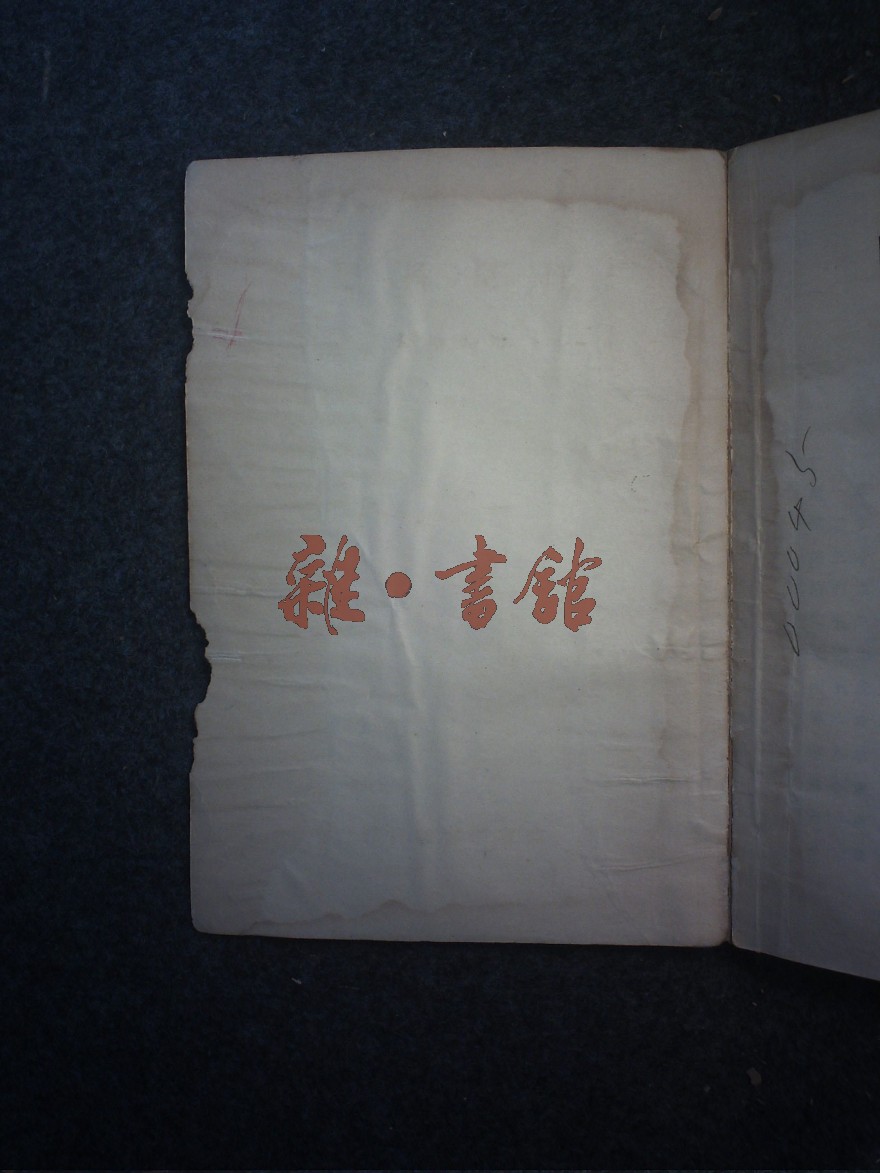 雜·書館
00045